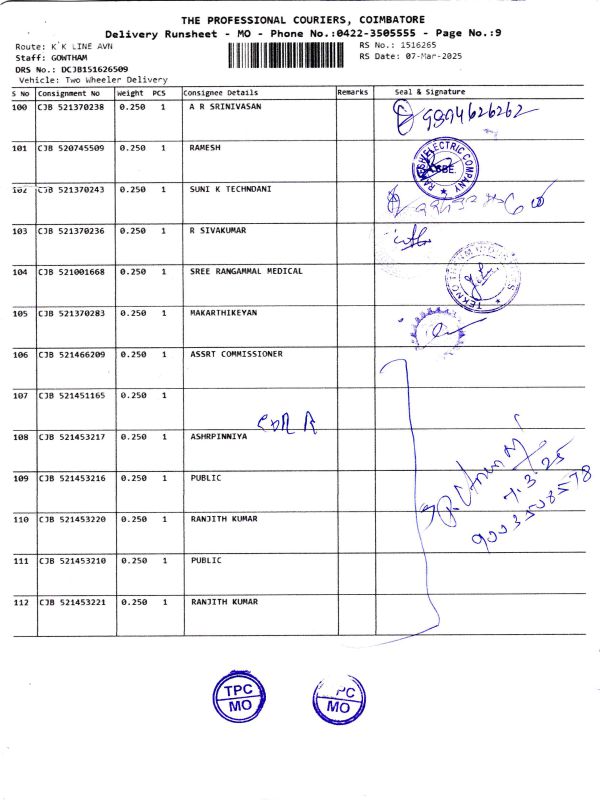 THE PROFESSIONAL COURIERS, COIMBATORE
Delivery Runsheet - MO - Phone No.:0422-3505555 - Page No.:9
Route: K K LINE AVN
Staff: GOWTHAM
DRS No.: DCJB151626509
Vehicle: Two Wheeler Delivery
RS No.: 1516265
RS Date: 07-Mar-2025
S No Consignment No Weight PCS Consignee Details Remarks Seal & Signature
100 CJB 521370238 0.250 1 A R SRINIVASAN
101 CJB 520745509 0.250 1 RAMESH
ELECTRIC COMPANY
CBE.
102 CJB 521370243 0.250 1 SUNI K TECHNDANI
103 CJB 521370236 0.250 1 R SIVAKUMAR
104 CJB 521001668 0.250 1 SREE RANGAMMAL MEDICAL
105 CJB 521370283 0.250 1 MAKARTHIKEYAN
106 CJB 521466209 0.250 1 ASSRT COMMISSIONER
107 CJB 521451165 0.250 1
108 CJB 521453217 0.250 1 ASHRPINNIYA
109 CJB 521453216 0.250 1 PUBLIC
110 CJB 521453220 0.250 1 RANJITH KUMAR
111 CJB 521453210 0.250 1 PUBLIC
112 CJB 521453221 0.250 1 RANJITH KUMAR
9003508578
TPC
MO
PC
MO